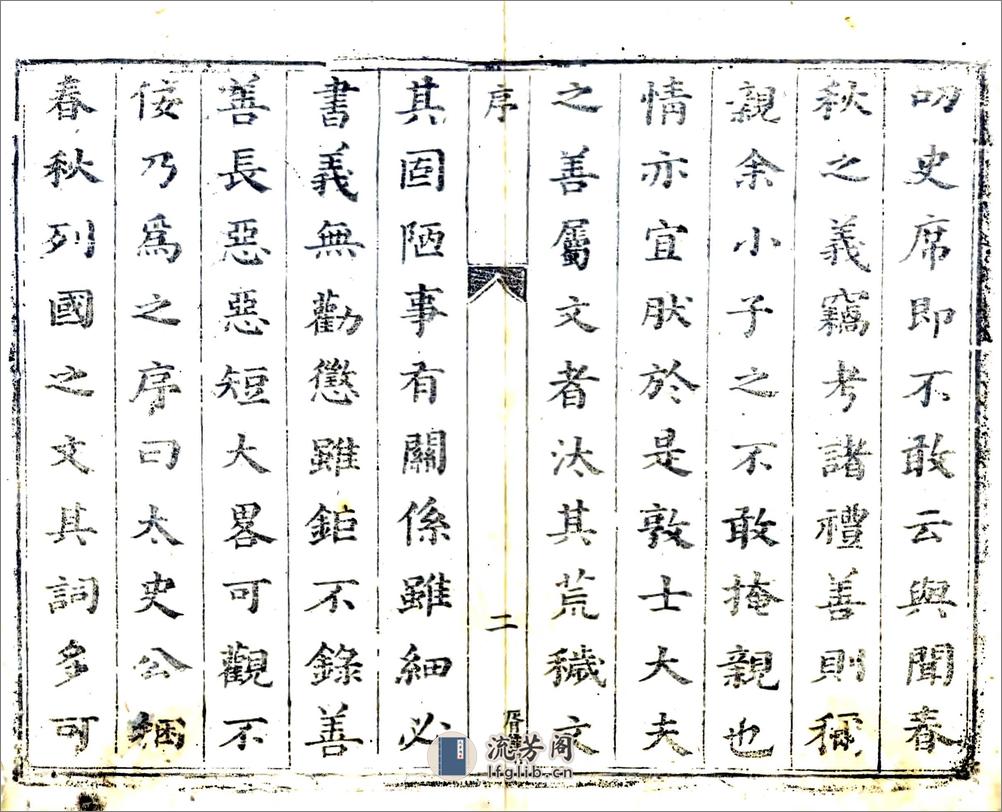 叨史席即不敢云與聞春
秋之義竊考諸禮善則稱
親余小子之不敢掩親也
情亦宜肰於是敦士大夫
之善屬文者汰其荒穢文
序
二
其固陋事有關係雖細必
書義無勸懲雖鉅不錄善
善長惡惡短大畧可觀不
佞乃爲之序曰太史公䌷
春秋列國之文其詞多可
流芳阁
lfglib.cn